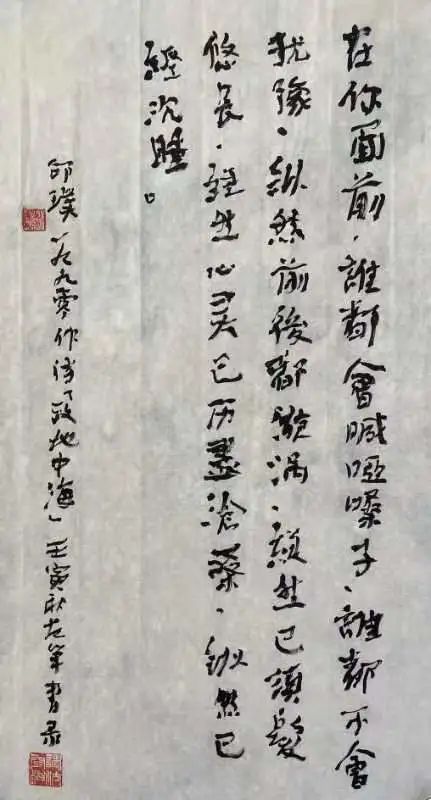 在你面前、誰都會喊啞嗓子、誰都不會
犹豫、纵然前後都漩涡、然已須髮
悠長、雖然心灵已历盡滄桑、纵然已
經沉睡。
邵璞一九九零作诗「致地中海」壬寅秋左筆書录